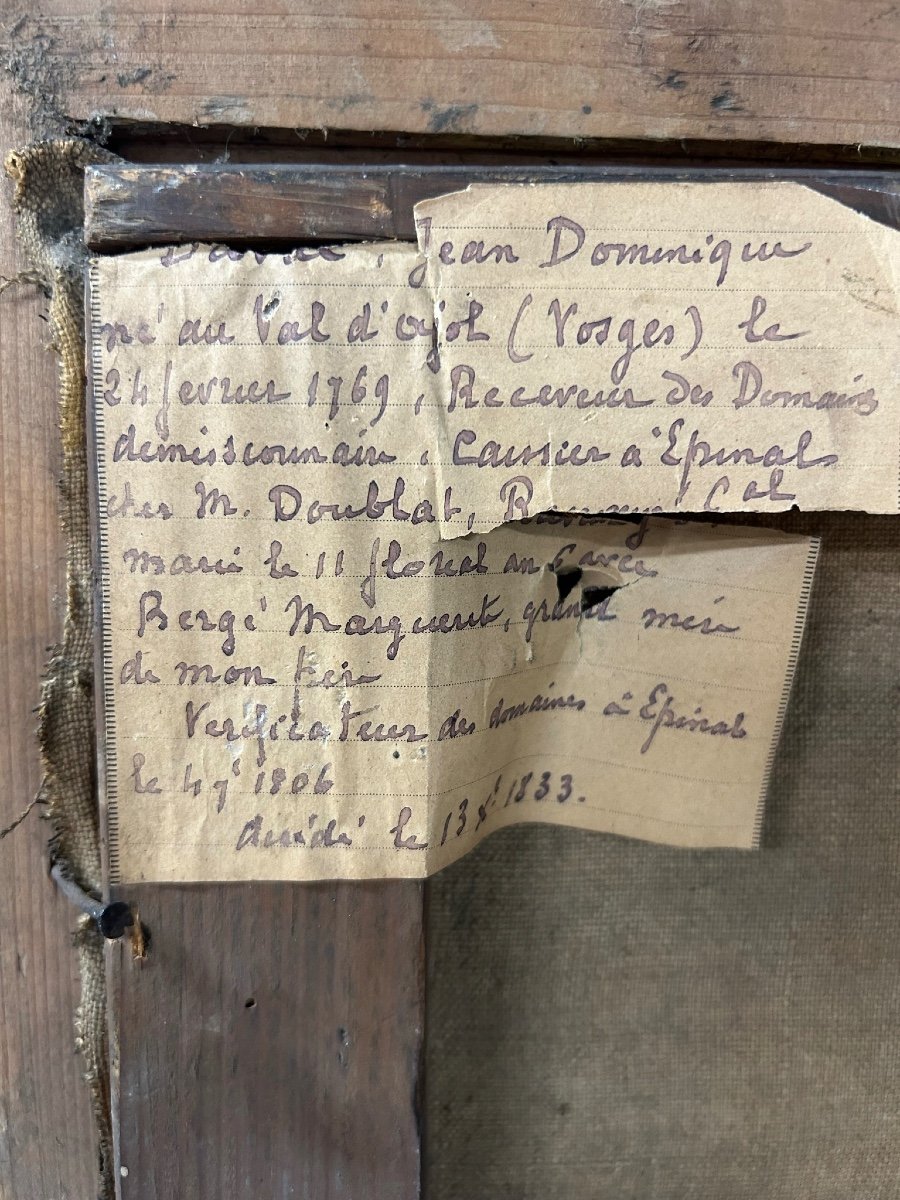 , Jean Dominique
né au Val d'ajol (Vosges) le
24 fevrier 1769, Receveur des Domaines
demissionnaire, Caissier à Epinal
chez M. Doublat,
marié le 11 floreal an 6 avec
Bergé Marguerite, grand mère
de mon père
Verificateur des domaines à Epinal
le 4 1806
décédé le 13 1833.